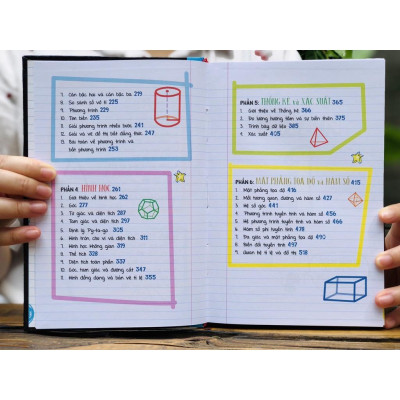 5. Căn bậc hai và căn bậc ba 219
6. So sánh số vô tỉ 225
7. Phương trình 229
8. Tìm biến 235
9. Giải phương trình nhiều bước 241
10. Giải và vẽ đồ thị bất đẳng thức 247
11. Bài toán về phương trình và
bất phương trình 253
PHẦN 4: HÌNH HỌC 261
1. Giới thiệu về hình học 262
2. Góc 277
3. Tứ giác và diện tích 287
4. Tam giác và diện tích 297
5. Định lý Py-ta-go 305
6. Hình tròn, chu vi và diện tích 311
7. Hình học không gian 319
8. Thể tích 328
9. Diện tích toàn phần 337
10. Góc, tam giác và đường cắt 347
11. Hình đồng dạng và bản vẽ tỉ lệ 355
PHẦN 5: THỐNG KÊ và XÁC SUẤT 365
1. Giới thiệu về Thống kê 366
2. Đo lường hướng tâm và sự biến thiên 375
3. Trình bày dữ liệu 385
4. Xác suất 405
PHẦN 6: MẶT PHẲNG TỌA ĐỘ và HÀM SỐ 415
1. Mặt phẳng tọa độ 416
2. Mối tương quan, đường và hàm số 427
3. Hệ số góc 441
4. Phương trình tuyến tính và hàm số 456
5. Phương trình tuyến tính và hàm số 466
6. Hàm số phi tuyến tính 478
7. Đa giác và mặt phẳng tọa độ 490
8. Biến đổi tuyến tính 497
9. Quan hệ tỉ lệ và đồ thị 518